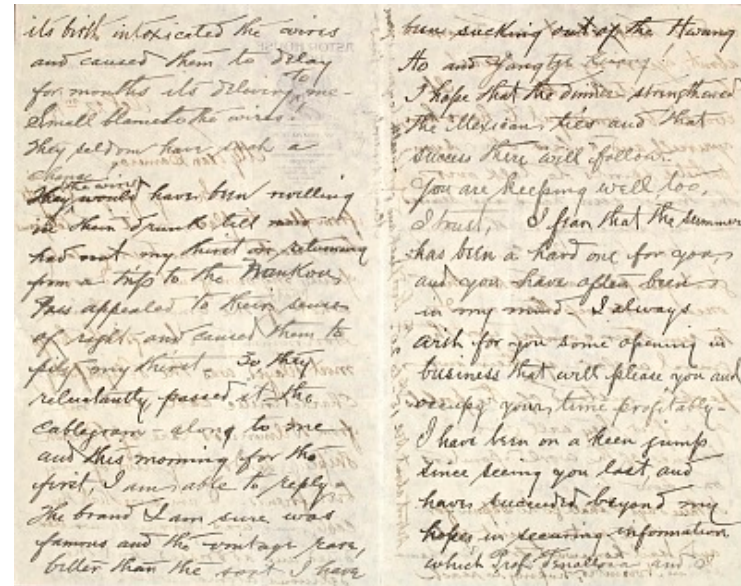 its birth intoxicated the wires
and caused them to delay
for months its delivery to me -
Small blame to the wires!
They seldom have such a
chance!
They the wires would have been
in their drunk till now
had not my thirst on returning
from a trip to the Nankou
Pass appealed to their sense
of right and caused them to
pity my thirst - So they
reluctantly passed it - the
cablegram - along to me
and this morning for the
first, I am able to reply -
The brand I am sure was
famous and the vintage rare,
better than the sort I have
been sucking out of the Hwang
Ho and Yangtze
I hope that the dinner strengthened
the Mexican ties and that
success there will follow.
You are keeping well too,
I trust, I fear that the summer
has been a hard one for you,
and you have often been
in my mind. I always
wish for you some opening in
business that will please you and
occupy your time profitably -
I have been on a keen jump
since seeing you last and
have succeeded beyond my
hopes in securing information
which Prof. Fenollosa and I
ASTOR HOUSE